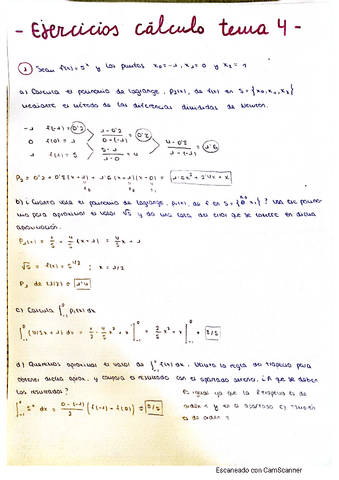 - Ejercicios cálculo tema 4 -
① Sean f(x) = 5ˣ y los puntos x₀ = -1, x₁ = 0 y x₂ = 1
a) Calcula el polinomio de Lagrange, P₂(x), de f(x) en S = {x₀, x₁, x₂}
mediante el método de las diferencias divididas de Newton.
-1 f(-1) = 0.2
0 f(0) = 1
1 f(1) = 5
1-0.2 / 0-(-1) = 0.8
5-1 / 1-0 = 4
4-0.8 / 1-(-1) = 1.6
P₂ = 0.2 + 0.8(x+1) + 1.6(x+1)(x-0) = 1.6x² + 2.4x + 1
b) ¿Cuánto vale el polinomio de Lagrange, P₁(x), de f en S = {x₀, x₁}? Usa ese polino-
mio para aproximar el valor √5 y da una cota del error que se comete en dicha
aproximación.
P₁(x) = 1/5 + 4/5 (x+1) = 4/5 x + 1
√5 = f(x) = 5^1/2 ; x = 1/2
P₁ de (1/2) = 1.4
c) Calcula ∫₋₁⁰ P₁(x) dx
∫₋₁⁰ (4/5x + 1) dx = 4/5 · x²/2 + x |₋₁⁰ = 2/5 x² + x |₋₁⁰ = 3/5
d) Queremos aproximar el valor de ∫₋₁⁰ f(x) dx. Utiliza la regla del trapecio para
obtener dicha aprox. y compara el resultado con el apartado anterior. ¿A qué se deben
los resultados?
∫₋₁⁰ 5ˣ dx = 0-(-1)/2 (f(-1) + f(0)) = 3/5
Es igual ya que la f trapecio es de
orden 1 y en el apartado c) también
es de orden 1
Escaneado con CamScanner